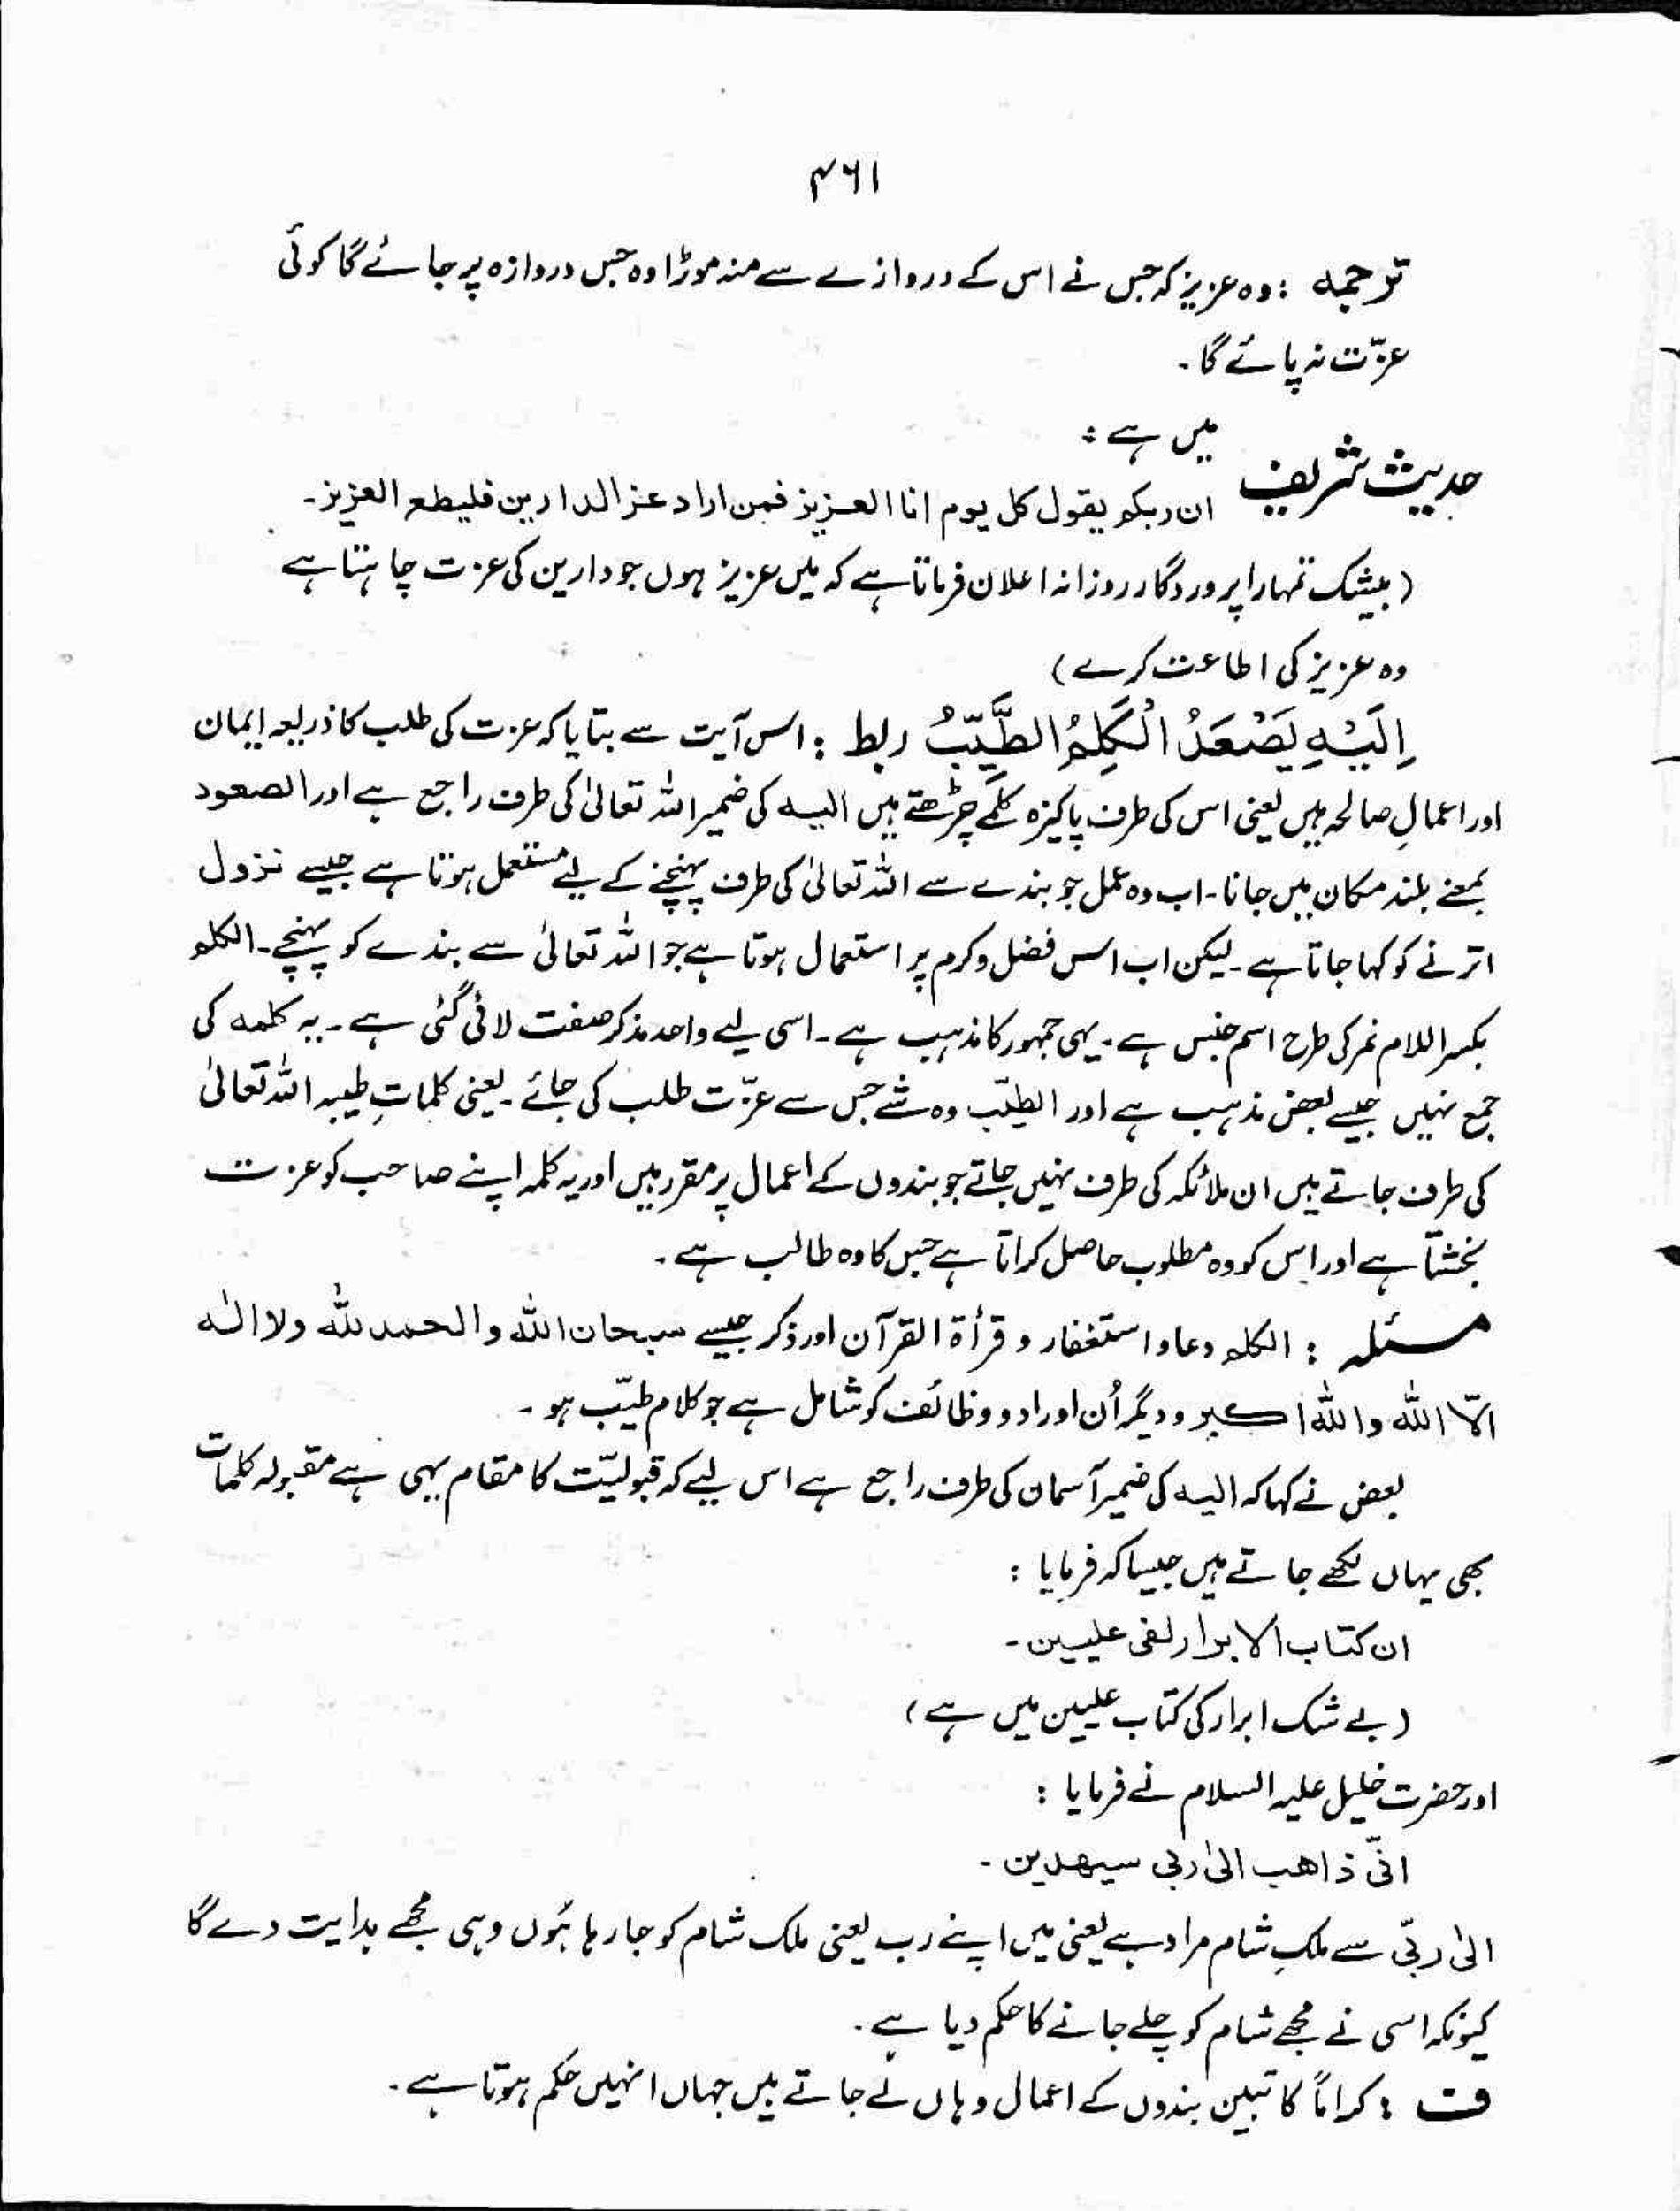 ۴۶۱
ترجمہ : وہ عزیز کہ جس نے اس کے دروازے سے منہ موڑا وہ جس دروازہ پر جائے گا کوئی
عزّت نہ پائے گا۔
حدیث شریف میں ہے :
ان ربکم یقول کل یوم انا العزیز فمن اراد عز الدارین فلیطع العزیز۔
(بیشک تمہارا پروردگار روزانہ اعلان فرماتا ہے کہ میں عزیز ہوں جو دارین کی عزت چاہتا ہے
وہ عزیز کی اطاعت کرے)
اِلَیْہِ یَصْعَدُ الْکَلِمُ الطَّیِّبُ ربط : اس آیت سے بتایا کہ عزت کی طلب کا ذریعہ ایمان
اور اعمالِ صالحہ ہیں یعنی اس کی طرف پاکیزہ کلمے چڑھتے ہیں الیہ کی ضمیر اللہ تعالیٰ کی طرف راجع ہے اور الصعود
بمعنے بلند مکان میں جانا۔ اب وہ عمل جو بندے سے اللہ تعالیٰ کی طرف پہنچنے کے لیے مستعمل ہوتا ہے جیسے نزول
اترنے کو کہا جاتا ہے۔ لیکن اب اس فضل و کرم پر استعمال ہوتا ہے جو اللہ تعالیٰ سے بندے کو پہنچے۔ الکلم
بکسر اللام نمر کی طرح اسم جنس ہے۔ یہی جمہور کا مذہب ہے۔ اسی لیے واحد مذکر صفت لائی گئی ہے۔ یہ کلمہ کی
جمع نہیں جیسے بعض مذہب ہے اور الطیّب وہ شے جس سے عزّت طلب کی جائے۔ یعنی کلماتِ طیبہ اللہ تعالیٰ
کی طرف جاتے ہیں ان ملائکہ کی طرف نہیں جاتے جو بندوں کے اعمال پر مقرر ہیں اور یہ کلمہ اپنے صاحب کو عزت
بخشتا ہے اور اس کو وہ مطلوب حاصل کراتا ہے جس کا وہ طالب ہے۔
مسئلہ : الکلم دعا و استغفار و قرأۃ القرآن اور ذکر جیسے سبحان اللہ والحمد للہ ولا الٰہ
الّا اللہ واللہ اکبر و دیگر اُن اوراد و وظائف کو شامل ہے جو کلام طیّب ہو۔
بعض نے کہا کہ الیہ کی ضمیر آسمان کی طرف راجع ہے اس لیے کہ قبولیّت کا مقام یہی ہے مقبولہ کلمات
بھی یہاں لکھے جاتے ہیں جیسا کہ فرمایا :
ان کتاب الابرار لفی علیین۔
(بے شک ابرار کی کتاب علیین میں ہے)
اور حضرت خلیل علیہ السلام نے فرمایا :
انّی ذاھب الیٰ ربی سیھدین۔
الیٰ ربّی سے ملکِ شام مراد ہے یعنی میں اپنے رب یعنی ملک شام کو جا رہا ہُوں وہی مجھے ہدایت دے گا
کیونکہ اسی نے مجھے شام کو چلے جانے کا حکم دیا ہے۔
ف : کراماً کاتبین بندوں کے اعمال وہاں لے جاتے ہیں جہاں انہیں حکم ہوتا ہے۔